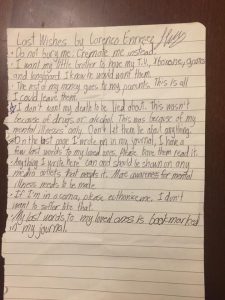 Last Wishes by Lorenzo
• Do not bury me. Cremate me instead.
• I want my little brother to have my T.V., Xboxone, games
and longboard. I know he would want them.
• The rest of my money goes to my parents. This is all
I could leave them.
• I don't want my death to be lied about. This wasn't
because of drugs or alcohol. This was because of my
mental illnesses only. Don't let them lie about anything.
• On the last page I wrote on in my journal, I have a
few last words to my loved ones. Please have them read it.
• Anything I write here can and should be shown on any
media outlets that needs it. More awareness for mental
illness needs to be made.
• If I'm in a coma, please euthanize me. I don't
want to suffer like that.
• My last words to my loved ones is bookmarked
in my journal.